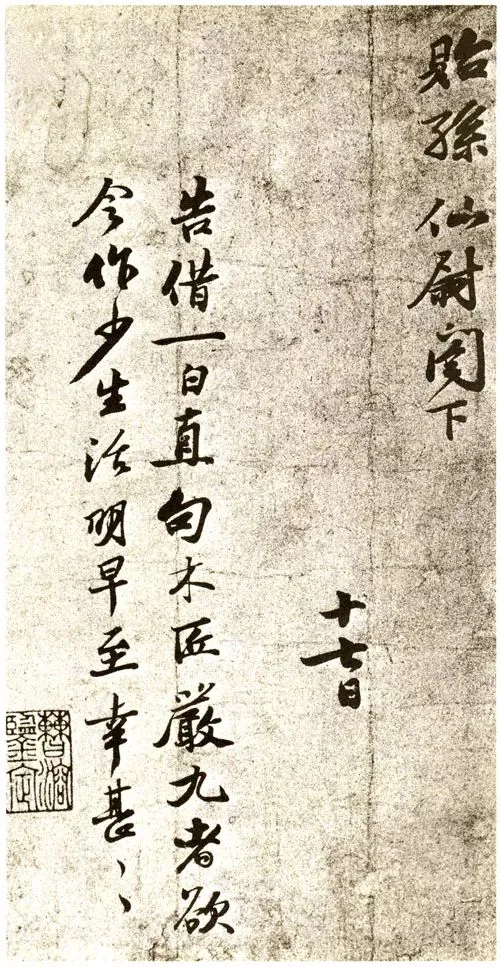 貽孫仙尉閣下
十七日
告借一日直句木匠嚴九者欲
令作少生活明早至幸甚〻
曹溶
鑒定